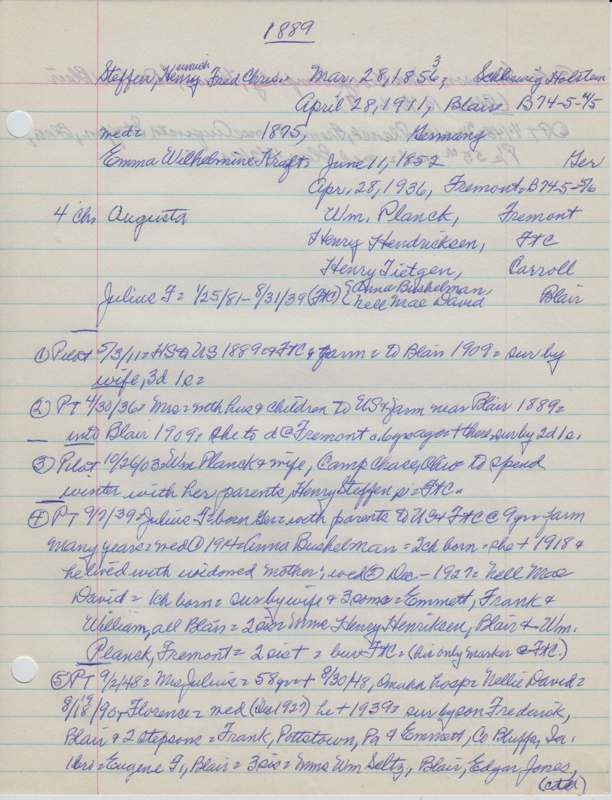 1889
Steffen, Henry Fred Chris. Mar. 28, 1856, Schleswig Holstein
April 28, 1911, Blair B74-5-4/5
med = 1875, Germany
Emma Wilhelmine Kraft, June 11, 1852 Ger
Apr. 28, 1936, Fremont, B74-5-5/6
4 ch. Augusta Wm. Planck, Fremont
Henry Hendricksen, FtC
Henry Tietgen, Carroll
Julius F = 1/25/81 - 8/31/39 (FtC) { Anna Bushelman, Nell Mae David Blair
① Pilot 5/3/11 = US 1889 = FtC & farm = to Blair 1909 = sur by
wife, 3d 1s =
② PT 4/30/36 = Mrs = with hus & children to US & farm near Blair 1889 =
into Blair 1909 = she to d @ Fremont 6 yrs ago + there, sur by 2d 1s.
③ Pilot 10/26/03 = Wm Planck & wife, Camp Chase, Ohio to spend
winter with her parents, Henry Steffen si = FtC.
④ PT 9/7/39 = Julius F = born Ger = with parents to US & FtC @ 9 yr = farm
many years = med ① 1914 = Anna Bushelman = 2 ch born = she + 1918 &
he lived with widowed mother; wed ② Dec - 1927 = Nell Mae
David = 1 ch born = sur by wife & 3 sons = Emmett, Frank &
William, all Blair = 2 sis = Mmes Henry Henriksen, Blair & Wm.
Planck, Fremont = 2 sist = bur FtC = (his only marker @ FtC.)
⑤ PT 9/2/48 = Mrs Julius = 58 yr + 8/30/48, Omaha hosp = Nellie David =
8/18/90 Florence = med (Dec 1927) he + 1939 = sur by son Frederick,
Blair & 2 stepsons = Frank, Pottstown, Pa & Emmett, Co Bluffs, Ia.
1 bro = Eugene F, Blair = 3 sis = Mmes Wm Seltz, Blair, Edgar Jones,
(ctd)